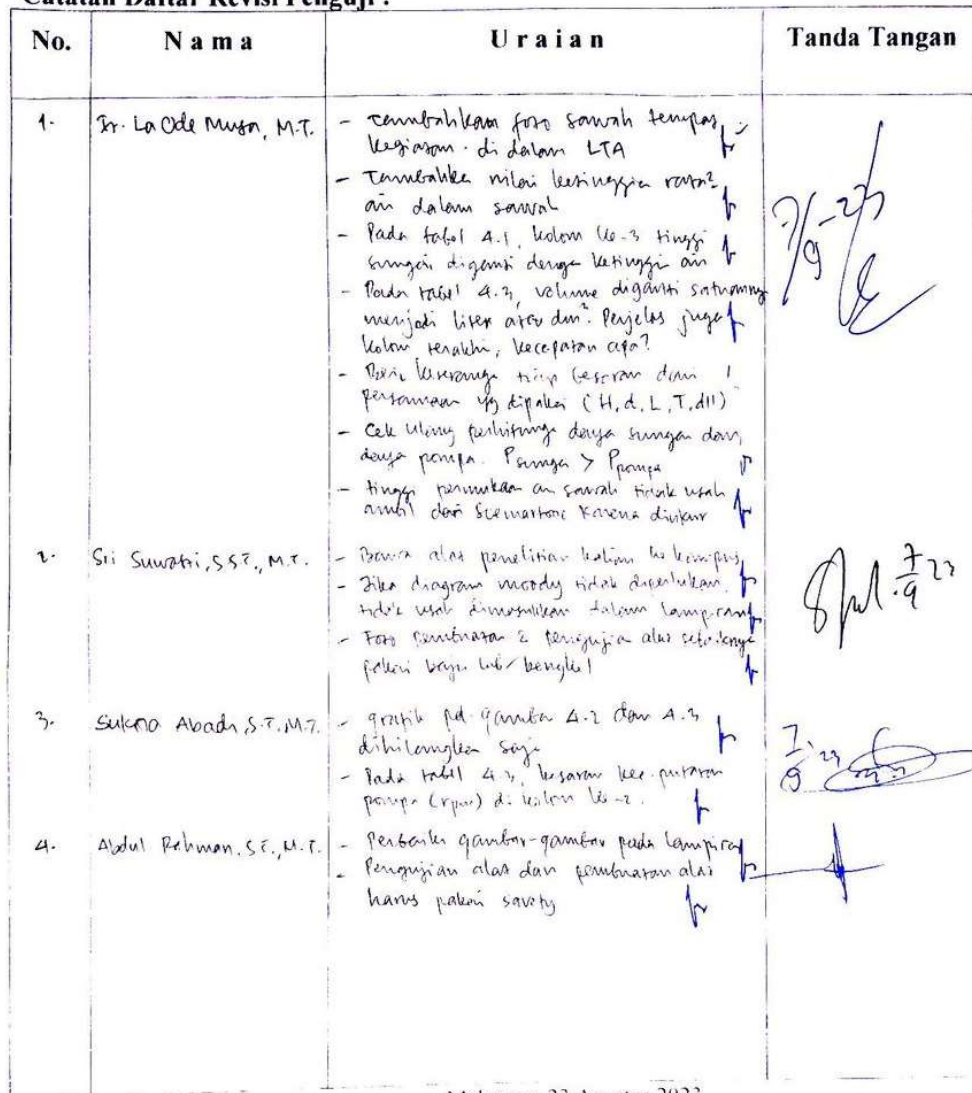 Catatan Daftar Revisi Penguji :
No. Nama Uraian Tanda Tangan
1. Ir. La Ode Musa, M.T. - Tambahkan foto sawah tempat
kegiatan di dalam LTA
- Tambahkan nilai ketinggian rata2
air dalam sawah
- Pada tabel 4.1, kolom ke-3 tinggi
sungai diganti dengan ketinggian air
- Pada tabel 4.3, volume diganti satuannya
menjadi liter atau dm³. Perjelas juga
kolom terakhir, kecepatan apa?
- Beri keterangan tiap besaran dari
persamaan yg dipakai (H, d, L, T, dll)
- Cek ulang perhitungan daya sungai dan
daya pompa. Psungai > Ppompa
- tinggi permukaan air sawah tidak usah
ambil dari karena diukur
7/9-23
2. Sri Suwasti, S.ST., M.T. - Bawa alat penelitian kalian ke kampus
- Jika diagram moody tidak diperlukan,
tidak usah dimasukkan dalam lampiran
- Foto pembuatan & pengujian alat sebaiknya
pakai baju lab/bengkel
7/9 23
3. Sukma Abadi, S.T., M.T. - grafik pd. gambar 4.2 dan 4.3
dihilangkan saja
- Pada tabel 4.3, besaran kec. putaran
pompa (rpm) di kolom ke-2.
7/9 23
4. Abdul Rahman, S.T., M.T. - Perbaiki gambar-gambar pada lampiran
- Pengujian alat dan pembuatan alat
harus pakai savety
Makassar, 23 Agustus 2023